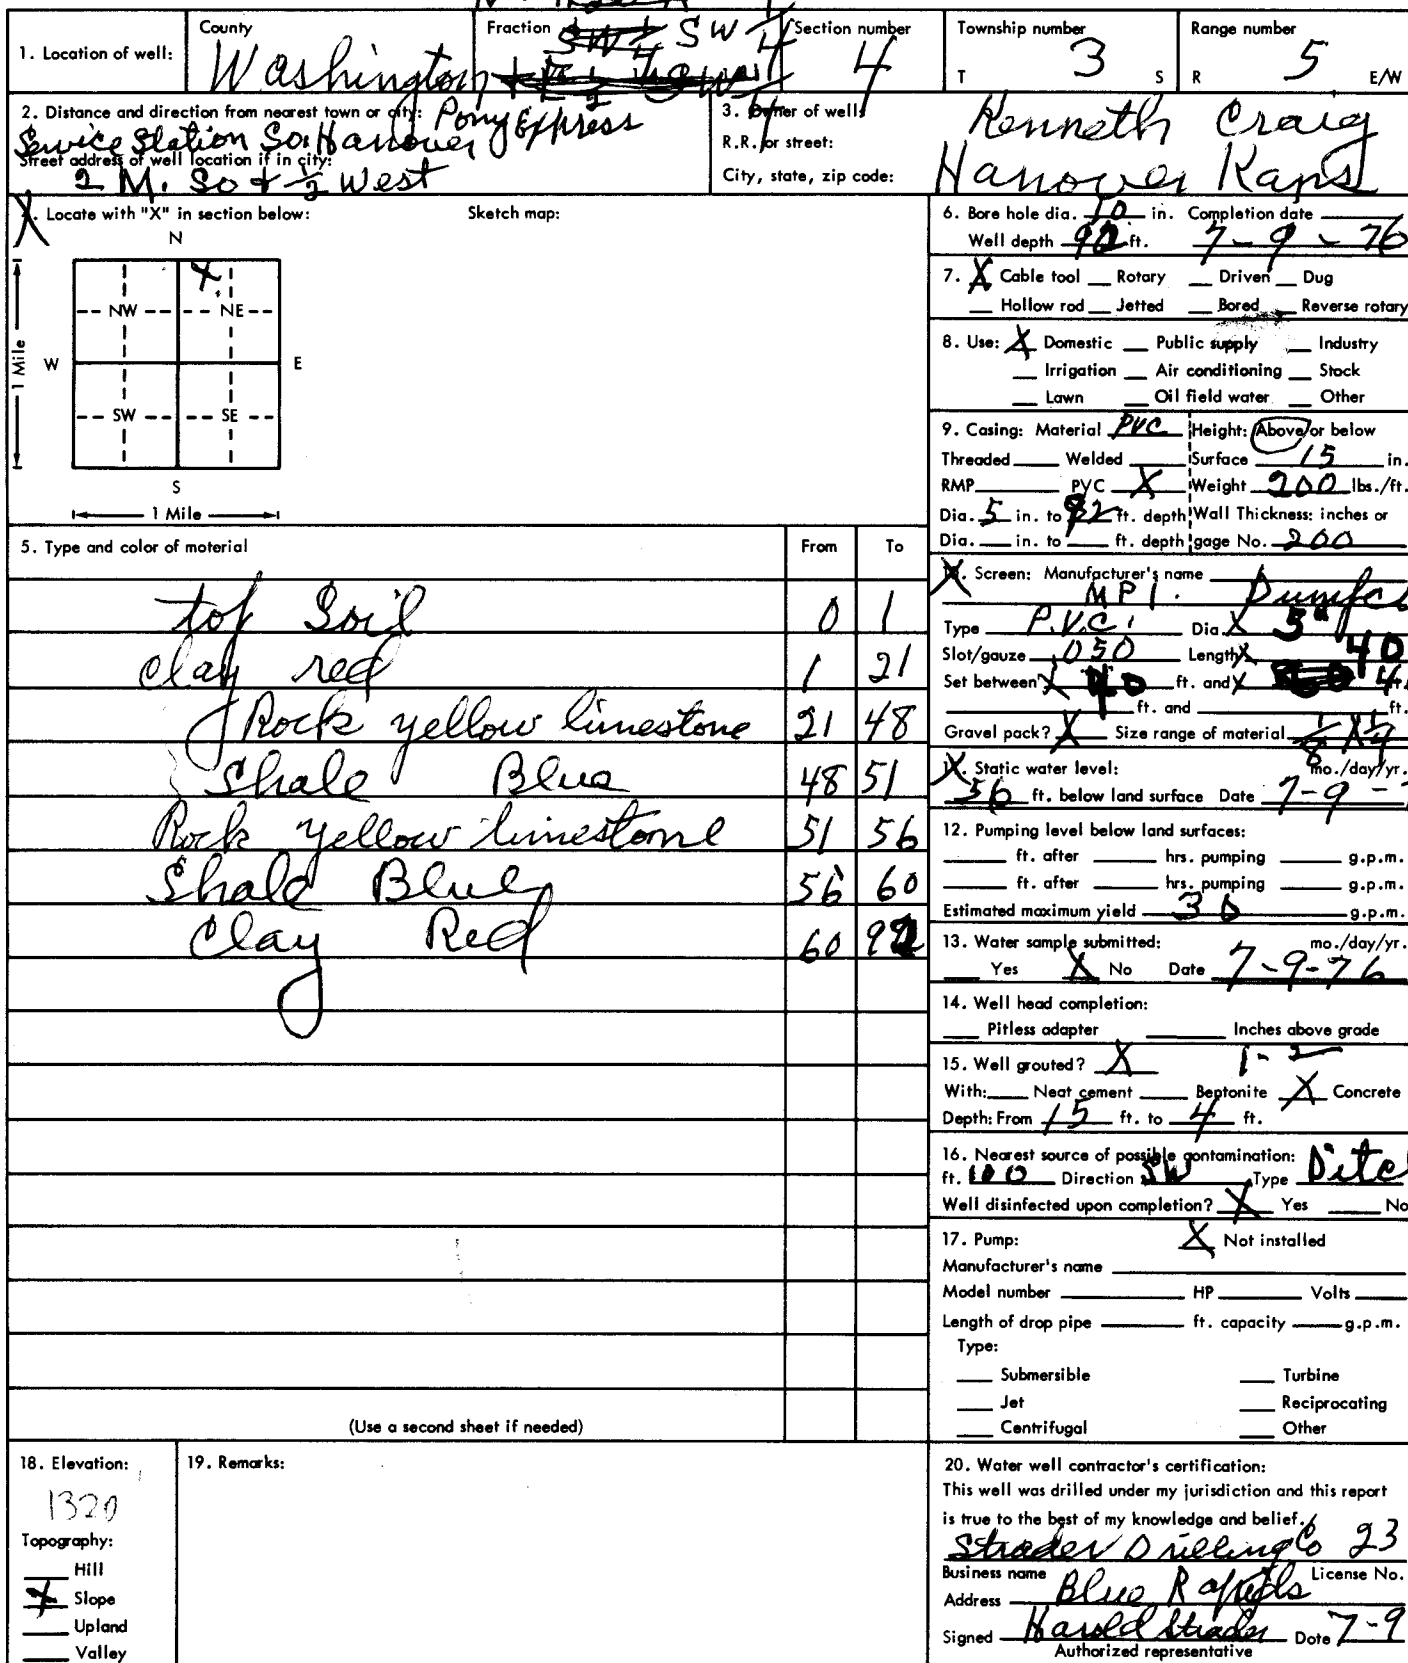 County
Fraction
Section number
Township number
Range number
1. Location of well:
Washington
SW 1/4
4
T 3 S
R 5 E/W
2. Distance and direction from nearest town or city: Pony Express
Service Station So. Hanover
Street address of well location if in city:
2 M. So + 1/2 West
3. Owner of well:
Kenneth Craig
R.R. or street:
City, state, zip code:
Hanover Kans
4. Locate with "X" in section below:
Sketch map:
N
X
NW
NE
W
E
1 Mile
SW
SE
S
1 Mile
5. Type and color of material
From
To
top Soil 0 1
clay red 1 21
Rock yellow limestone 21 48
Shale Blue 48 51
Rock yellow limestone 51 56
Shale Blue 56 60
Clay Red 60 92
(Use a second sheet if needed)
6. Bore hole dia. 10 in. Completion date
Well depth 92 ft. 7-9-76
7. X Cable tool __ Rotary __ Driven __ Dug
__ Hollow rod __ Jetted __ Bored __ Reverse rotary
8. Use: X Domestic __ Public supply __ Industry
__ Irrigation __ Air conditioning __ Stock
__ Lawn __ Oil field water __ Other
9. Casing: Material PVC Height: Above or below
Threaded ___ Welded ___ Surface 15 in.
RMP ___ PVC X Weight 200 lbs./ft.
Dia. 5 in. to 92 ft. depth Wall Thickness: inches or
Dia. ___ in. to ___ ft. depth gage No. 200
10. Screen: Manufacturer's name
MPI.
Type P.V.C. Dia. X 5"
Slot/gauze .050 Length X 40
Set between X 40 ft. and X
___ ft. and ___ ft.
Gravel pack? X Size range of material 1/8 X 1/4
11. Static water level: mo./day/yr.
56 ft. below land surface Date 7-9-7
12. Pumping level below land surfaces:
___ ft. after ___ hrs. pumping ___ g.p.m.
___ ft. after ___ hrs. pumping ___ g.p.m.
Estimated maximum yield 30 g.p.m.
13. Water sample submitted: mo./day/yr.
__ Yes X No Date 7-9-76
14. Well head completion:
__ Pitless adapter ___ Inches above grade
15. Well grouted? X 1-2
With: __ Neat cement __ Bentonite X Concrete
Depth: From 15 ft. to 4 ft.
16. Nearest source of possible contamination:
ft. 100 Direction SW Type Ditc
Well disinfected upon completion? X Yes ___ No
17. Pump: X Not installed
Manufacturer's name
Model number ___ HP ___ Volts ___
Length of drop pipe ___ ft. capacity ___ g.p.m.
Type:
__ Submersible __ Turbine
__ Jet __ Reciprocating
__ Centrifugal __ Other
18. Elevation:
1320
Topography:
__ Hill
X Slope
__ Upland
__ Valley
19. Remarks:
20. Water well contractor's certification:
This well was drilled under my jurisdiction and this report
is true to the best of my knowledge and belief.
Strader Drilling Co 23
Business name License No.
Address Blue Rapids
Signed Harold Strader Date 7-9
Authorized representative